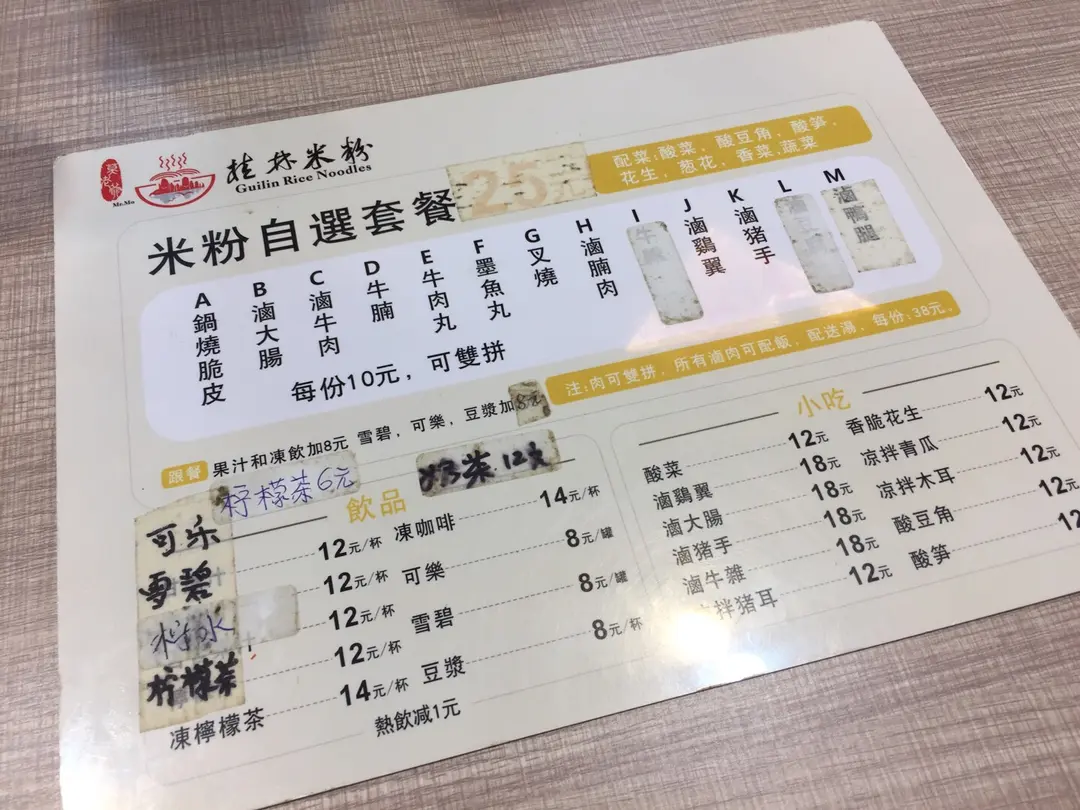 莫老爺
Mr.Mo
桂林米粉
Guilin Rice Noodles
米粉自選套餐
25元
配菜:酸菜、酸豆角、酸笋、
花生、葱花、香菜,蔬菜
A鍋燒脆皮
B滷大腸
C滷牛肉
D牛腩
E牛肉丸
F墨魚丸
G叉燒
H滷腩肉
I牛
J滷鷄翼
K滷猪手
L滷
M滷鴨腿
每份10元，可雙拼
注:肉可雙拼，所有滷肉可配飯，配送湯，每份:38元.
跟餐 果汁和凍飲加8元 雪碧，可樂，豆漿加8元
柠檬茶6元
奶茶12元
飲品
可乐 12元/杯
雪碧 12元/杯
柠水 12元/杯
柠檬茶 12元/杯
凍檸檬茶 14元/杯
凍咖啡 14元/杯
可樂 8元/罐
雪碧 8元/罐
豆漿 8元/杯
熱飲减1元
小吃
酸菜 12元
滷鷄翼 18元
滷大腸 18元
滷猪手 18元
滷牛雜 18元
拌猪耳 12元
香脆花生 12元
凉拌青瓜 12元
凉拌木耳 12元
酸豆角 12元
酸笋 12